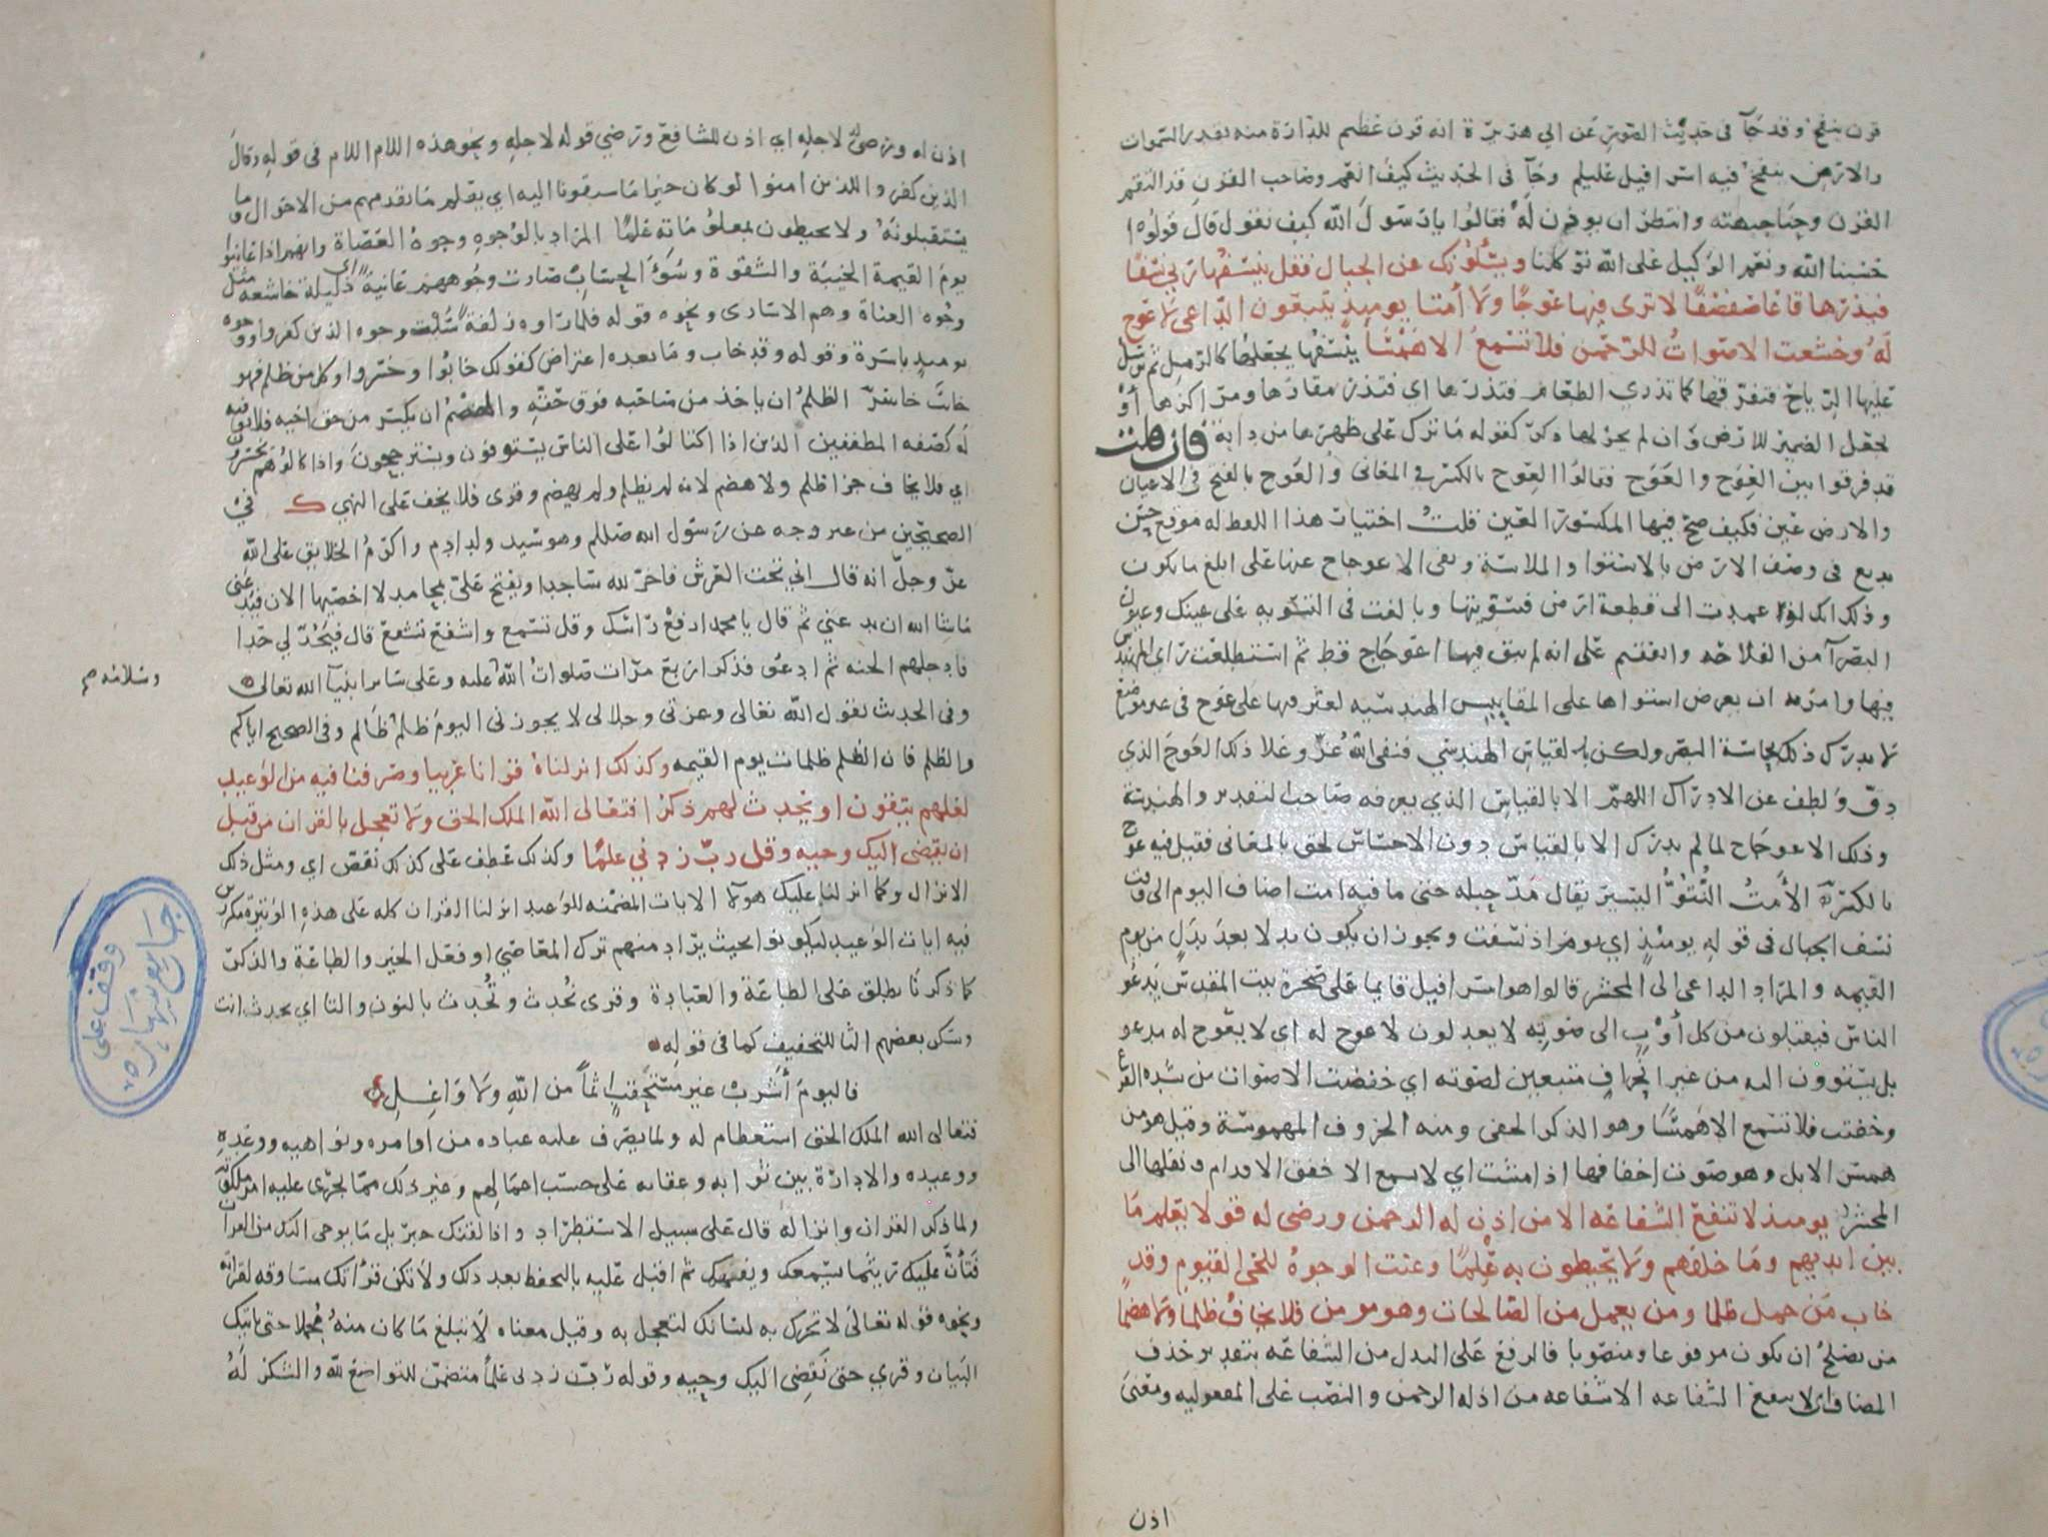 قرن ينفخ وقد جآ في حديث الصور عن ابي هريرة انه قرن عظيم للدارة منه بقدر السموات
والارض ينفخ فيه اسرافيل عليلم وجآ في الحديث كيف انعم وصاحب القرن قد التقم
القرن وحنا جبهته وانتظر ان يوذن له فقالوا يا رسول الله كيف نقول قال قولوا
حسبنا الله ونعم الوكيل على الله توكلنا ويسئلونك عن الجبال فقل ينسفها ربي نسفا
فيذرها قاعا صفصفا لا ترى فيها عوجا ولا أمتا يوميذ يتبعون الداعي لا عوج
له وخشعت الاصوات للرحمن فلا تسمع الا همسا ينسفها يجعلها كالرمل ثم يرسل
عليها الرياح فتفرقها كما تذري الطعام فتذرها اي فتذر مقارها ومراكزها أو
يجعل الضمير للارض وان لم يجر لها ذكر كقوله ما ترك على ظهرها من دابة فان قلت
قد فرقوا بين العوج والعوج فقالوا العوج بالكسر في المعاني والعوج بالفتح في الاعيان
والارض عين فكيف صح فيها المكسور العين قلت اختيار هذا اللفظ له موقع حسن
بديع في وصف الارض بالاستوا والملاسة ونفي الاعوجاج عنها على ابلغ ما يكون
وذلك انك لو عمدت الى قطعة ارض فسويتها وبالغت في التسويه على عينك وعيون
البصرآ من الفلاحه واتفقتم على انه لم يبق فيها اعوجاج قط ثم استطلعت راي المهندس
فيها وامرته ان يعرض استواها على المقاييس الهندسيه لعثر فيها على عوج في غير موضع
لا يدرك ذلك بحاسة البصر ولكن بالقياس الهندسي فنفى الله عز وعلا ذلك العوج الذي
دق ولطف عن الادراك اللهم الا بالقياس الذي يعرفه صاحب التقدير والهندسة
وذلك الاعوجاج لما لم يدرك الا بالقياس دون الاحساس لحق بالمعاني فقيل فيه عوج
بالكسر الأمت النتو اليسير يقال مد حبله حتى ما فيه امت اضاف اليوم الى وقت
نسف الجبال في قوله يومئذ اي يوم اذ نسفت ويجوز ان يكون بدلا بعد بدل من يوم
القيمه والمراد الداعي الى المحشر قالوا هو اسرافيل قايما على صخرة بيت المقدس يدعو
الناس فيقبلون من كل أوب الى صوته لا يعدلون لا عوج له اي لا يعوج له مدعو
بل يستوون اليه من غير انحراف متبعين لصوته اي خفضت الاصوات من شده الفزع
وخفتت فلا تسمع الا همسا وهو الذكر الخفي ومنه الحروف المهموسة وقيل هو من
همس الابل وهو صوت اخفافها اذا مشت اي لا يسمع الا خفق الاقدام ونقلها الى
المحشر يوميذ لا تنفع الشفاعه الا من اذن له الرحمن ورضي له قولا يعلم ما
بين ايديهم وما خلفهم ولا يحيطون به علما وعنت الوجوه للحي القيوم وقد
خاب من حمل ظلما ومن يعمل من الصالحات وهو مومن فلا يخاف ظلما ولا هضما
من يصلح ان يكون مرفوعا ومنصوبا فالرفع على البدل من الشفاعه بتقدير حذف
المضاف اي لا تنفع الشفاعه الا شفاعه من اذن له الرحمن والنصب على المفعوليه ومعنى
اذن
اذن له ورضي لاجله اي اذن للشافع ورضي قوله لاجله ونحو هذه اللام اللام في قوله وقال
الذين كفروا للذين امنوا لو كان خيرا ما سبقونا اليه اي يعلم ما تقدمهم من الاحوال وما
يستقبلونه ولا يحيطون بمعلوماته علما المراد بالوجوه وجوه العصاة وانهم اذا عاينوا
يوم القيمة الخيبة والشقوة وسوء الحساب صارت وجوههم عانية اي ذليلة خاشعه مثل
وجوه العناة وهم الاسارى ونحوه قوله فلما راوه زلفة سئت وجوه الذين كفروا ووجوه
يوميذ باسرة وقوله وقد خاب وما بعده اعتراض كقولك خابوا وخسروا وكل من ظلم فهو
خاب خاسر الظلم ان ياخذ من صاحبه فوق حقه والهضم ان يكسر من حق اخيه فلا يوفيه
له كصفه المطففين الذين اذا اكتالوا على الناس يستوفون ويسترجحون واذا كالوهم يخسرون
اي فلا يخاف جزا ظلم ولا هضم لانه لم يظلم ولم يهضم وقرى فلا يخف على النهي ك في
الصحيحين من غير وجه عن رسول الله صلالم وهو سيد ولد ادم واكرم الخلايق على الله
عز وجل انه قال اتي تحت العرش فاخر لله ساجدا ويفتح علي بمحامد لا احصيها الان فيدعني
ما شا الله ان يدعني ثم قال يا محمد ارفع راسك وقل تسمع واشفع تشفع قال فيحد لي حدا
فادخلهم الجنه ثم ادعو فذكر اربع مرات صلوات الله عليه وعلى ساير انبيآ الله تعالى
وسلامه م
وفي الحديث يقول الله تعالى وعزتي وجلالي لا يجوزني اليوم ظلم ظالم وفي الصحيح اياكم
والظلم فان الظلم ظلمات يوم القيمه وكذلك انزلناه قرانا عربيا وصرفنا فيه من الوعيد
لعلهم يتقون او يحدث لهم ذكرا فتعالى الله الملك الحق ولا تعجل بالقران من قبل
ان يقضى اليك وحيه وقل رب زدني علما وكذلك عطف على كذلك نقص اي ومثل ذلك
الانزال وكما انزلنا عليك هولا الايات المضمنه للوعيد انزلنا القران كله على هذه الوتيرة مكررين
فيه ايات الوعيد ليكونوا بحيث يراد منهم ترك المعاصي او فعل الخير والطاعة والذكر
كما ذكرنا يطلق على الطاعة والعبادة وقرى نحدث وتحدث بالنون والتا اي يحدث انت
وسكن بعضهم الثا للتخفيف كما في قوله
فاليوم أشرب غير مستحقب اثما من الله ولا واغل
فتعالى الله الملك الحق استعظام له ولما يصرف عليه عباده من اوامره ونواهيه ووعده
ووعيده والادارة بين ثوابه وعقابه على حسب اعمالهم وغير ذلك مما يجري عليه امر ملكوته
ولما ذكر القران وانزاله قال على سبيل الاستطراد واذا لقنك جبريل ما يوحى اليك من القران
فتأن عليك ريثما يسمعك ويفهمك ثم اقبل عليه بالتحفظ بعد ذلك ولا تكن قرائتك مساوقه لقراته
ونحوه قوله تعالى لا تحرك به لسانك لتعجل به وقيل معناه لا تبلغ ما كان منه مجملا حتى ياتيك
البيان وقري حتى نقضي اليك وحيه وقوله رب زدني علما متضمن للتواضع لله والشكر له
وقف على
جامع شهاره